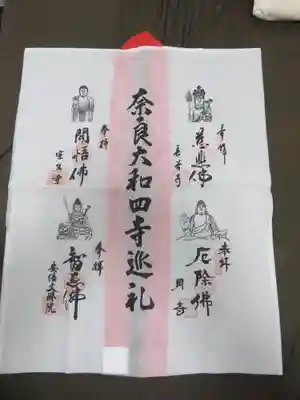 奉拝
慈悲佛
長谷寺
奈良大和四寺巡礼
奉拝
開悟佛
室生寺
奉拝
厄除佛
岡寺
奉拝
智恵佛
安倍文殊院